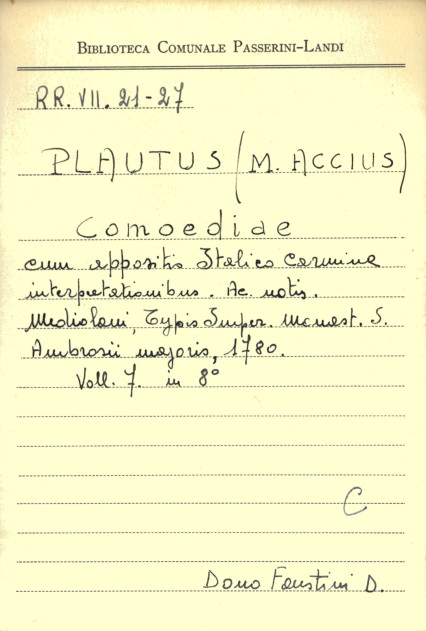 BIBLIOTECA COMUNALE PASSERINI-LANDI
RR. VII. 21-27
PLAUTUS (M. ACCIUS)
Comoediae
cum appositis Italico Carmine
interpretationibus. Ac notis.
Mediolani, Typis Imper. Monast. S.
Ambrosii majoris, 1780.
Voll. 7. in 8°
C
Dono Faustini D.